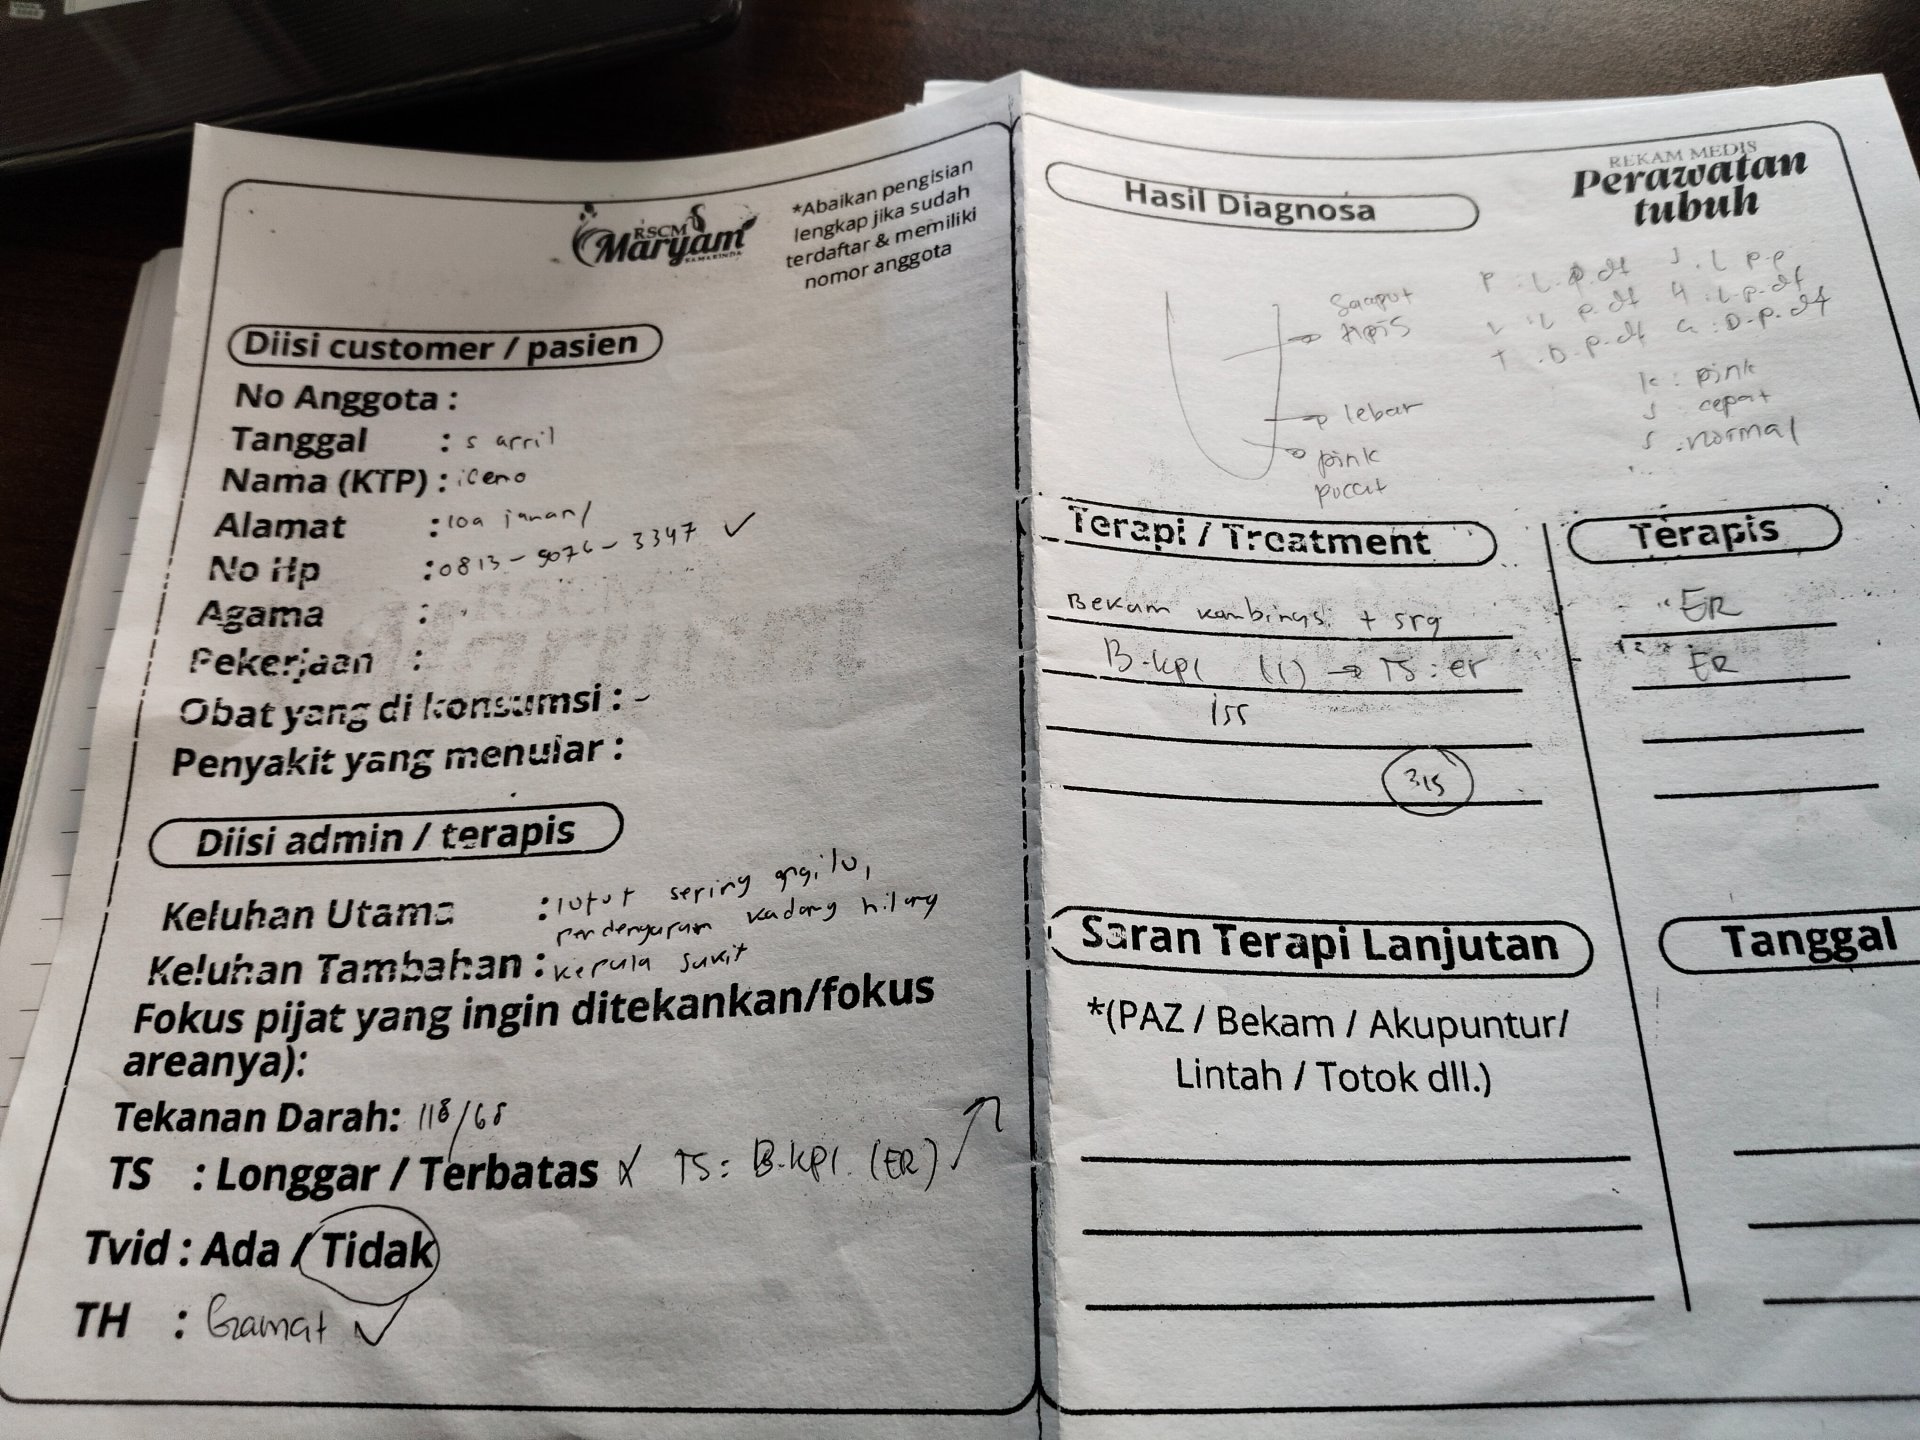 RSCM
Maryam
SAMARINDA
*Abaikan pengisian
lengkap jika sudah
terdaftar & memiliki
nomor anggota
Diisi customer / pasien
No Anggota :
Tanggal : 5 april
Nama (KTP) :
Alamat : loa janan
No Hp :
Agama :
Pekerjaan :
Obat yang di konsumsi : -
Penyakit yang menular :
Diisi admin / terapis
Keluhan Utama : lutut sering ngilu,
pendengaran kadang hilang
Keluhan Tambahan : kepala sakit
Fokus pijat yang ingin ditekankan/fokus
areanya):
Tekanan Darah: 118/65
TS : Longgar / Terbatas TS : B.kpl. (ER)
Tvid : Ada / Tidak
TH : Gamat ✓
Hasil Diagnosa
REKAM MEDIS
Perawatan
tubuh
P : L.P.df J . L P.P
: L P.df H : L.P.df
T : D.P.df G : D.P.df
tipis
lebar
pink
pucat
k : pink
J : cepat
S : normal
Terapi / Treatment
Bekam kambing + srg
B.kpl (1) → TS : er
155
315
Terapis
ER
ER
Saran Terapi Lanjutan
*(PAZ / Bekam / Akupuntur/
Lintah / Totok dll.)
Tanggal